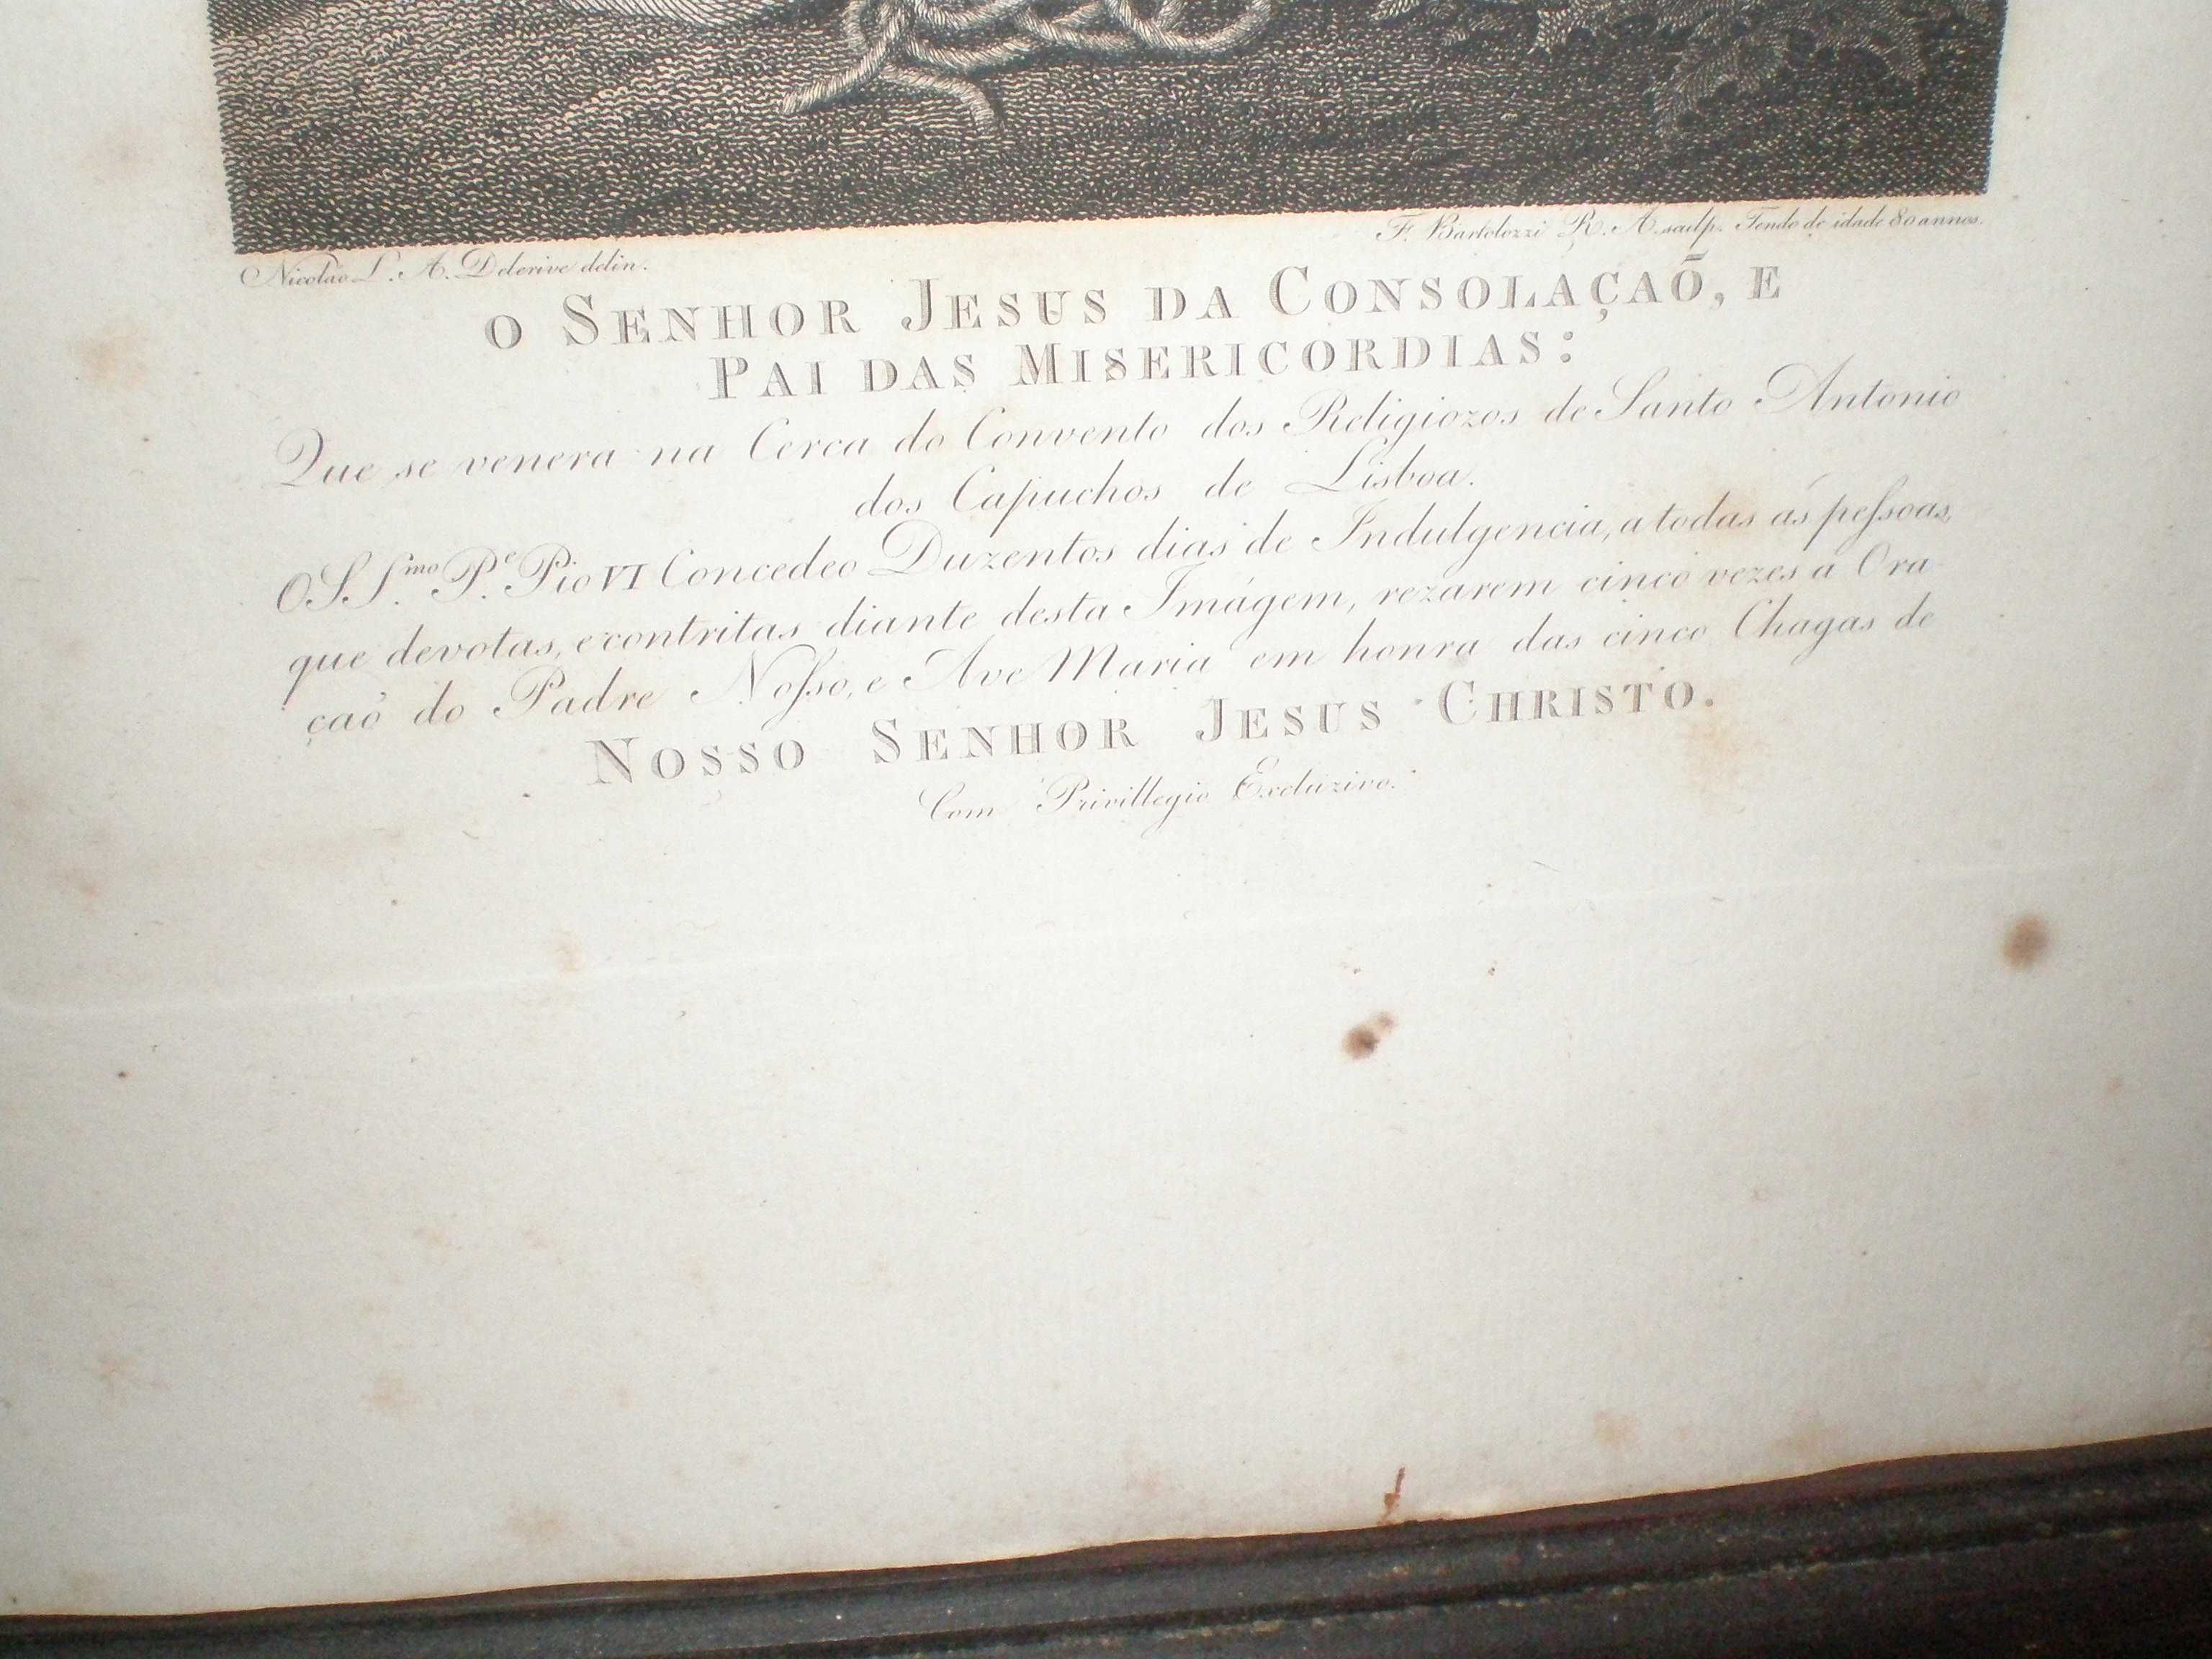 Nicolão L. A. Delerive delin.
F. Bartolozzi R. A. sculp. Tendo de idade 80 annos.
O SENHOR JESUS DA CONSOLAÇAÕ, E
PAI DAS MISERICORDIAS:
Que se venera na Cerca do Convento dos Religiozos de Santo Antonio
dos Capuchos de Lisboa.
O SS.mo P.e Pio VI Concedeo Duzentos dias de Indulgencia, a todas as peſsoas,
que devotas, e contritas diante desta Imágem, rezarem cinco vezes a Ora
çaõ do Padre Noſso, e Ave Maria em honra das cinco Chagas de
NOSSO SENHOR JESUS CHRISTO.
Com Privillegio Excluzivo.